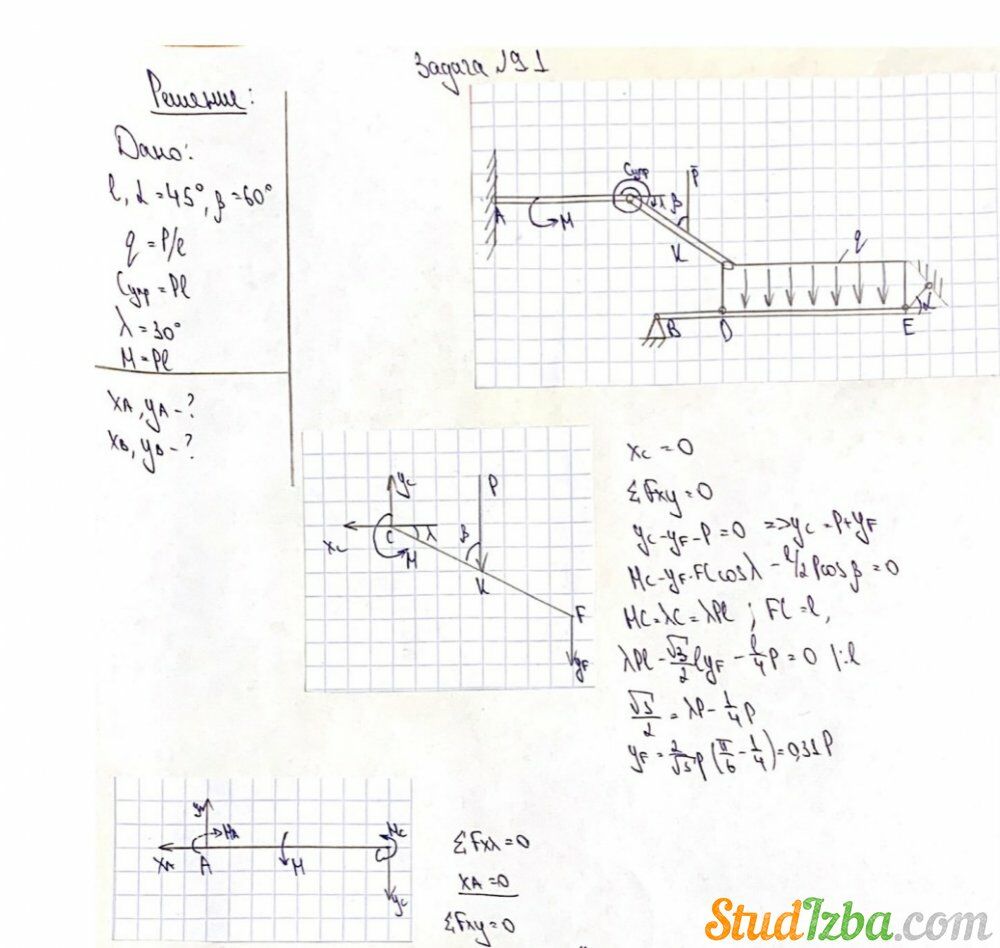 Задача №91
Решение:
Дано:
l, α=45°, β=60°
q = P/l
Cупр = Pl
λ = 30°
M = Pl
XA, yA - ?
XB, yB - ?
A
M
Cупр
λ
β
P
K
q
B
D
E
α
yC
P
XC
C
λ
M
β
K
F
yF
XC = 0
ΣFxy = 0
yC - yF - P = 0 => yC = P + yF
MC - yF · FC cosλ - l/2 P cosβ = 0
MC = λC = λPl ; FC = l,
λPl - √3/2 l yF - l/4 P = 0 |:l
√3/2 = λP - 1/4 P
yF = 2/√3 P (π/6 - 1/4) = 0,31P
MA
XA
A
M
MC
yC
ΣFxλ = 0
XA = 0
ΣFxy = 0
StudIzba.com